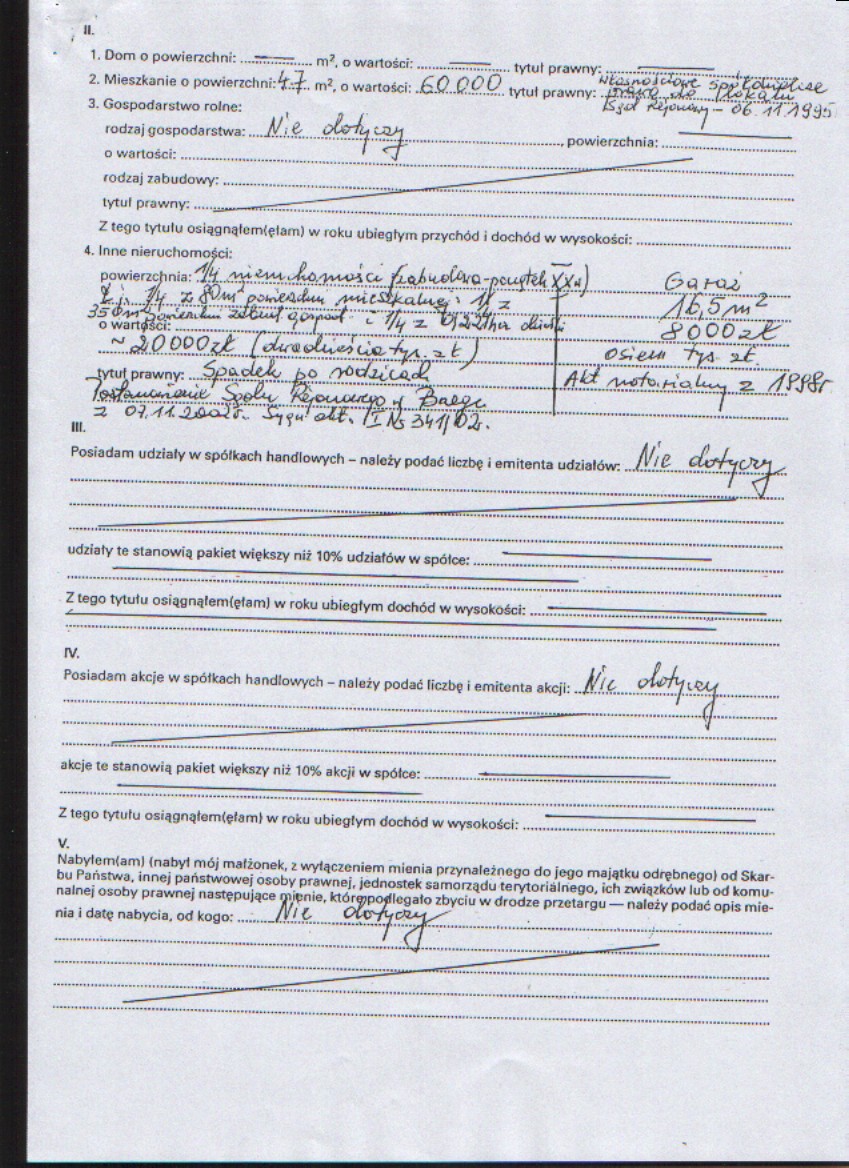 II.
1. Dom o powierzchni: ........ m², o wartości: ........ tytuł prawny: ........
2. Mieszkanie o powierzchni: 47 m², o wartości: 60 000 tytuł prawny: Własnościowe spółdzielcze
prawo do lokalu
Sąd Rejonowy – 06.11.1995
3. Gospodarstwo rolne:
rodzaj gospodarstwa: Nie dotyczy, powierzchnia: ........
o wartości: ........
rodzaj zabudowy: ........
tytuł prawny: ........
Z tego tytułu osiągnąłem(ęłam) w roku ubiegłym przychód i dochód w wysokości: ........
4. Inne nieruchomości:
powierzchnia: 1/4 nieruchomości (zabudowa - początek XXw) Garaż
t.j. 1/4 z 80m² powierzchni mieszkalnej; 1/4 z 16,5 m²
350m² powierzchni zabud. gospod. i 1/4 z działki
o wartości: 8000 zł
~ 20 000 zł (dwadzieścia tys. zł.) osiem tys. zł.
tytuł prawny: Spadek po rodzicach Akt notarialny z 1998r
Postanowienie Sądu Rejonowego w
z 07.11.2002r. Sygn. akt. I Ns 341/02r.
III.
Posiadam udziały w spółkach handlowych – należy podać liczbę i emitenta udziałów: Nie dotyczy
udziały te stanowią pakiet większy niż 10% udziałów w spółce: ........
Z tego tytułu osiągnąłem(ęłam) w roku ubiegłym dochód w wysokości: ........
IV.
Posiadam akcje w spółkach handlowych – należy podać liczbę i emitenta akcji: Nie dotyczy
akcje te stanowią pakiet większy niż 10% akcji w spółce: ........
Z tego tytułu osiągnąłem(ęłam) w roku ubiegłym dochód w wysokości: ........
V.
Nabyłem(am) (nabył mój małżonek, z wyłączeniem mienia przynależnego do jego majątku odrębnego) od Skar-
bu Państwa, innej państwowej osoby prawnej, jednostek samorządu terytorialnego, ich związków lub od komu-
nalnej osoby prawnej następujące mienie, które podlegało zbyciu w drodze przetargu — należy podać opis mie-
nia i datę nabycia, od kogo: Nie dotyczy